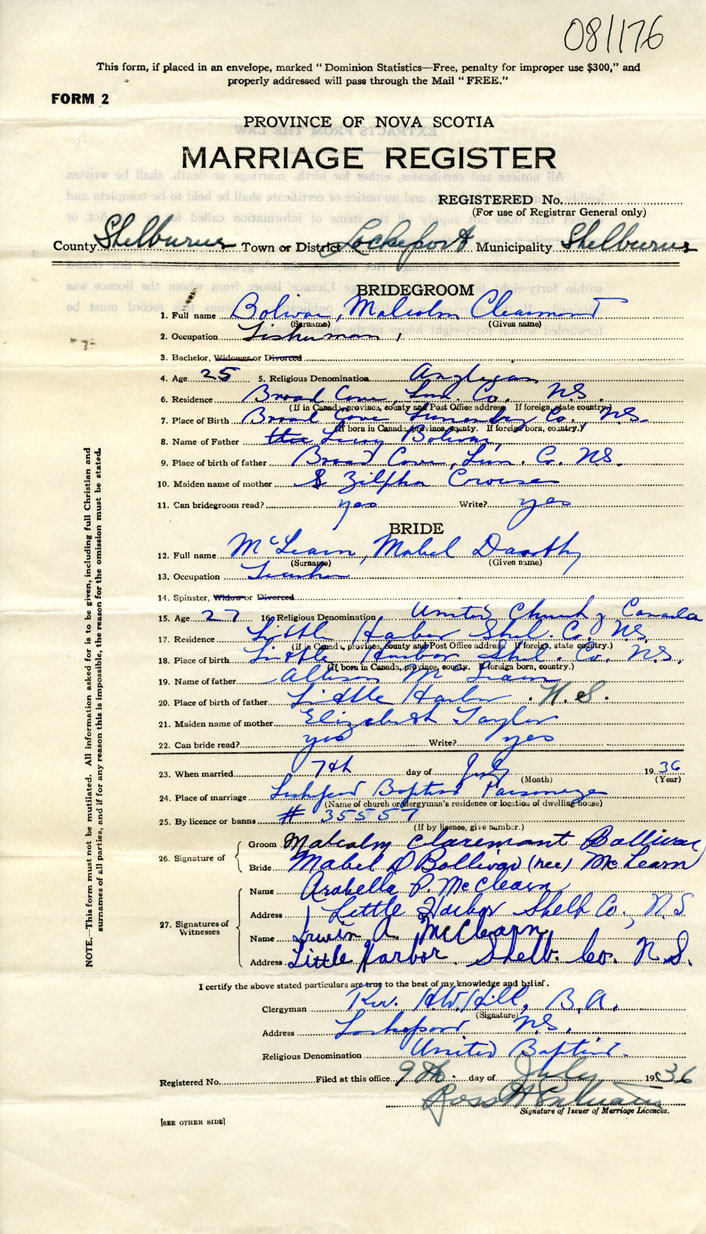 081176
This form, if placed in an envelope, marked "Dominion Statistics—Free, penalty for improper use $300," and
properly addressed will pass through the Mail "FREE."
FORM 2
PROVINCE OF NOVA SCOTIA
MARRIAGE REGISTER
REGISTERED No.
(For use of Registrar General only)
County Shelburne Town or District Lockeport Municipality Shelburne
BRIDEGROOM
1. Full name Bolivar, Malcolm Clearmont
(Surname) (Given name)
2. Occupation Fisherman
3. Bachelor, Widower or Divorced
4. Age 25 5. Religious Denomination Anglican
6. Residence Broad Cove, Lun. Co. N.S.
(If in Canada, province, county and Post Office address. If foreign, state country.)
7. Place of Birth Broad Cove Lunenburg Co. N.S.
(If born in Canada, province, county. If foreign born, country.)
8. Name of Father Bolivar,
9. Place of birth of father Broad Cove, Lun. Co. N.S.
10. Maiden name of mother Zilpha Crouse
11. Can bridegroom read? yes Write? yes
BRIDE
12. Full name McLearn, Mabel Dorothy
(Surname) (Given name)
13. Occupation Teacher
14. Spinster, Widow or Divorced
15. Age 27 16. Religious Denomination United Church of Canada
17. Residence Little Harbor Shel. Co. N.S.
(If in Canada, province, county and Post Office address. If foreign, state country.)
18. Place of birth Little Harbor Shel. Co. N.S.
(If born in Canada, province, county. If foreign born, country.)
19. Name of father Allison McLearn
20. Place of birth of father Little Harbor. N.S.
21. Maiden name of mother Elizabeth Taylor
22. Can bride read? yes Write? yes
23. When married 7th day of July 1936
(Month) (Year)
24. Place of marriage Lockeport Baptist Parsonage
(Name of church or clergyman's residence or location of dwelling house)
25. By licence or banns # 35557
(If by licence, give number.)
26. Signature of
Groom Malcolm Claremont Bollivar
Bride Mabel D Bollivar (nee) McLearn
27. Signatures of Witnesses
Name Arabella P. McClearn
Address Little Harbor Shelb Co., N.S
Name Irwin A. McClearn
Address Little Harbor. Shelb. Co. N.S.
I certify the above stated particulars are true to the best of my knowledge and belief.
Clergyman Rev. H.W. Hill, B.A.
(Signature)
Address Lockeport N.S.
Religious Denomination United Baptist.
Registered No. Filed at this office 9th. day of July 1936
Signature of Issuer of Marriage Licences.
[SEE OTHER SIDE]
NOTE.—This form must not be mutilated. All information asked for is to be given, including full Christian and
surnames of all parties, and if for any reason this is impossible, the reason for the omission must be stated.